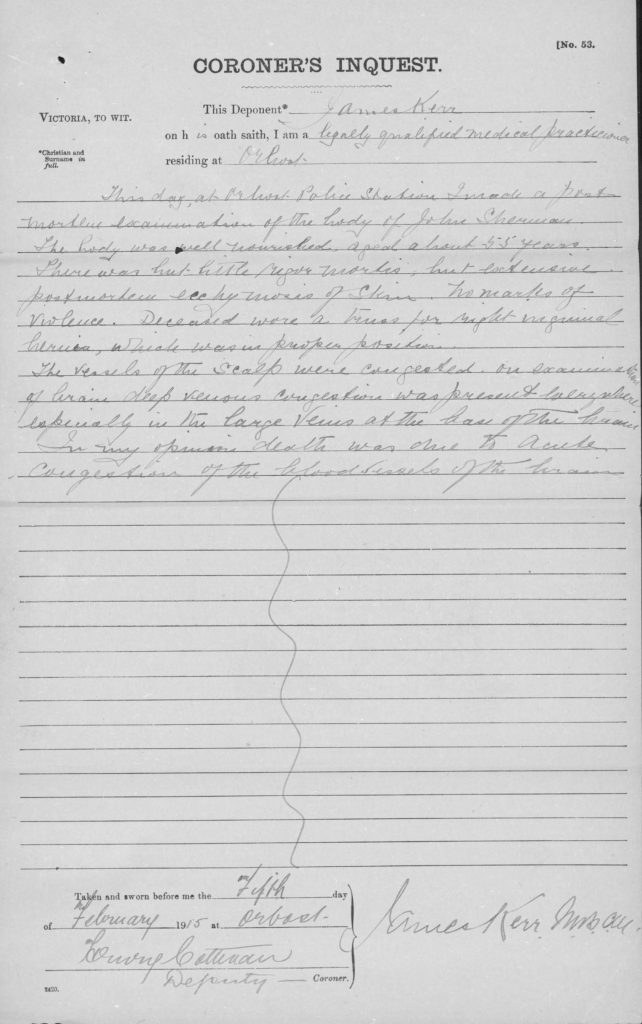 [No. 53.
CORONER'S INQUEST.
VICTORIA, TO WIT.
This Deponent* James Kerr
on his oath saith, I am a legally qualified medical practicioner
*Christian and
Surname in
full.
residing at Orbost
This day, at Orbost Police Station I made a post
mortem examination of the body of John Sherman.
The body was well nourished, aged about 55 years.
There was but little rigor mortis, but extensive
postmortem ecchymosis of skin. No marks of
violence. Deceased wore a truss for right inguinal
hernia, which was in proper position.
The vessels of the scalp were congested. On examination
of brain deep venous congestion was present everywhere
especially in the large veins at the base of the brain
In my opinion death was due to acute
congestion of the blood vessels of the brain
Taken and sworn before me the Fifth day
of February 1915 at Orbost
Deputy Coroner.
James Kerr
2420.